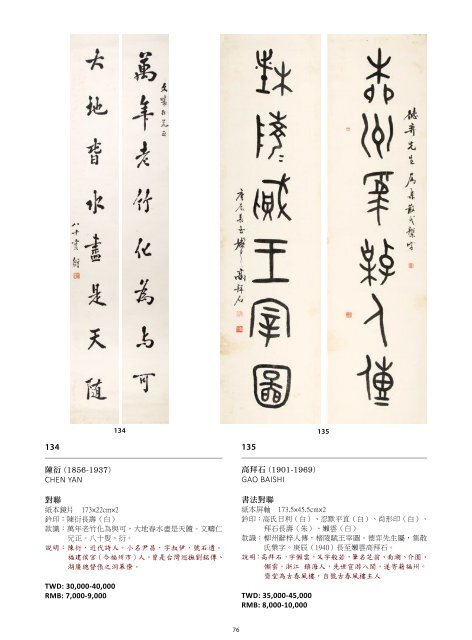 萬年老竹化為與可
文疇仁兄正
大地春水盡是天隨
八十叟衍
庚辰長至懶雲高拜石
134
135
134
陳衍 (1856-1937)
CHEN YAN
對聯
紙本鏡片 173×22cm×2
鈐印：陳衍長壽（白）
款識：萬年老竹化為與可，大地春水盡是天隨。文疇仁
兄正，八十叟。衍。
說明：陳衍，近代詩人。小名尹昌，字叔伊，號石遺，
福建侯官（今福州市）人。曾是台灣巡撫劉銘傳、
湖廣總督張之洞幕僚。
TWD: 30,000-40,000
RMB: 7,000-9,000
135
高拜石 (1901-1969)
GAO BAISHI
書法對聯
紙本屏軸 173.5x45.5cm×2
鈐印：高氏日利（白）、忍默平直（白）、尚形印（白）、
拜石長壽（朱）、嬾雲（白）
款識：柳州辭梓人傳，楮陵賦王宰圖。德弈先生屬，集散
氏槃字。庚辰（1940）長至嬾雲高拜石。
說明：高拜石，字嬾雲，又字般若，筆名芝翁、南湖、介園、
懶雲，浙江 鎮海人，先世宦游八閩，遂寄籍福州。
齋堂為古春風樓，自號古春風樓主人
TWD: 35,000-45,000
RMB: 8,000-10,000
76